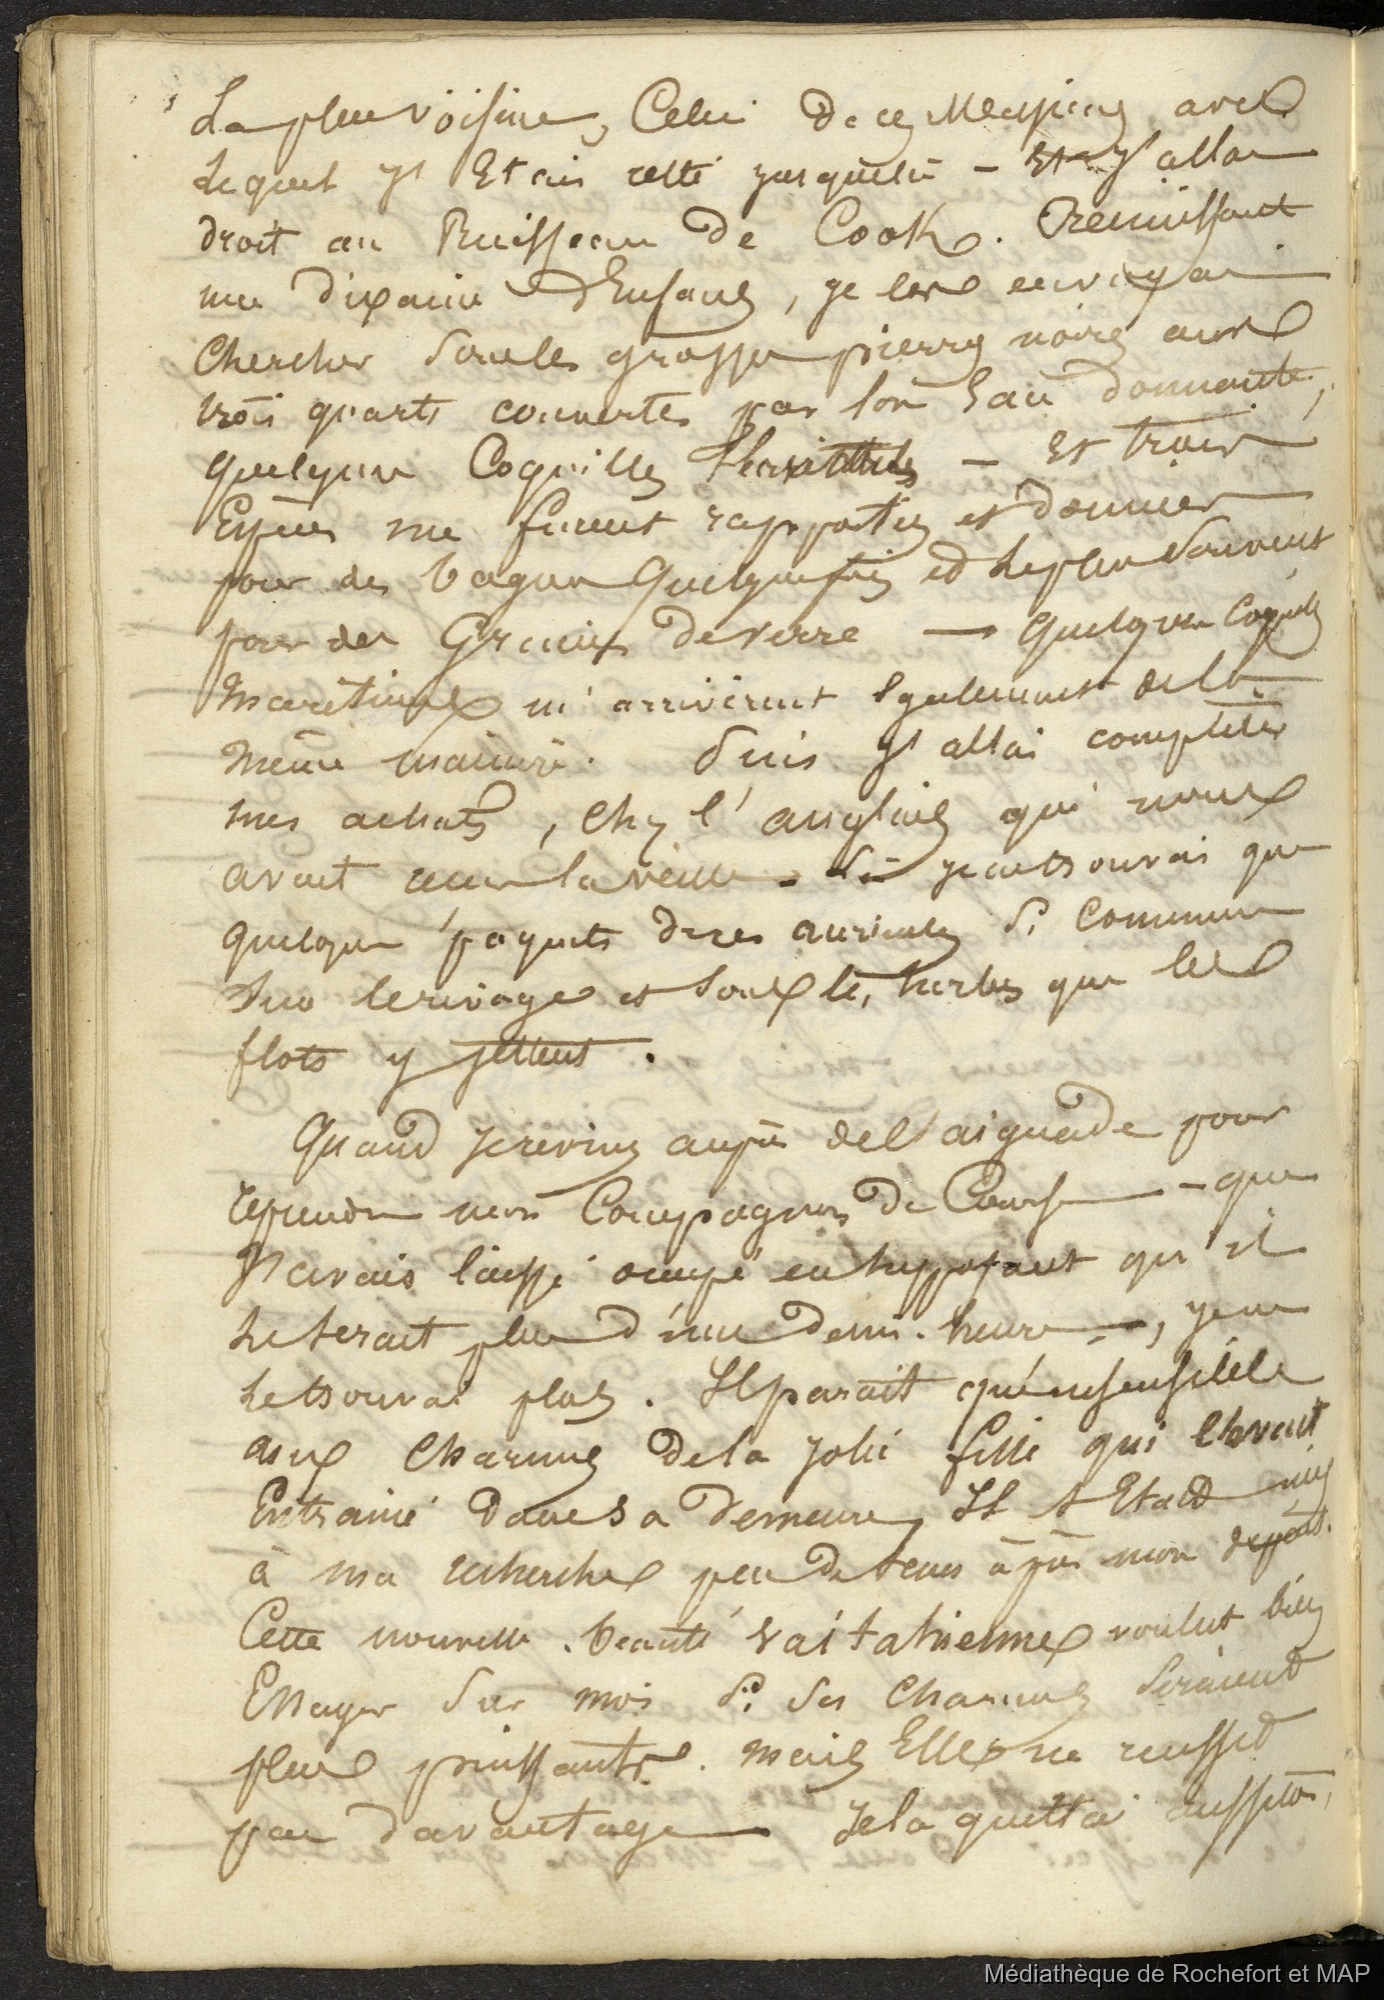 La plus voisine, Celui de ces Messieurs avec
Lequel j'Etais resté jusques là – Et j'allai
droit au Ruisseau de Cook. Reunissant
une dixaine d'Enfans, je les envoyai
Chercher sous les grosses pierres noires aux
trois quarts couvertes par son Eau dormante,
quelques Coquilles fluviatiles – Et trois
Espèces me furent rapportées et données
pour des bagues quelquefois et le plus souvent
pour des Grains de verre — quelques Coquilles
Maritimes m'arrivèrent Egalement de la
même manière. Puis j'allai completer
mes achats, chez l'anglais qui nous
avait la veille. Là je ne trouvai que
quelques paquets de ces auricules si Communes
sur le rivage et sous les herbes que les
flots y jettent.
Quand je revins auprès de l'aiguade pour
reprendre mon Compagnon de Course — que
j'avais laissé occupé en supposant qu'il
le serait plus d'une demi-heure —, je ne
le trouvai plus. Il parait qu'insensible
aux Charmes de la jolie fille qui l'avait
Entrainé dans sa demeure, Il s'Etait mis
à ma recherche peu de tems après mon départ.
Cette nouvelle beauté vaitahienne voulut bien
Essayer sur moi si ses Charmes seraient
plus puissants. mais Elle ne reussit
pas davantage — Je la quittai aussitôt,
Médiathèque de Rochefort et MAP